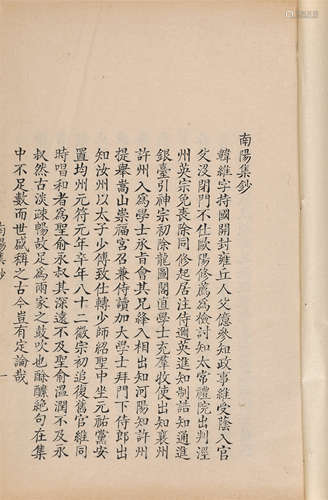 南陽集鈔
韓維字持國開封雍丘人父億參知政事維受蔭入官
父沒閉門不仕歐陽修薦為檢討知太常禮院出判涇
州英宗免喪除同修起居注侍邇英進知制誥知通進
銀臺引神宗初除龍圖閣直學士充羣牧使出知襄州
許州入為學士承旨會其兄絳入相出知河陽知許州
提舉嵩山崇福宮召兼侍讀加大學士拜門下侍郎出
知汝州以太子少傅致仕轉少師紹聖中坐元祐黨安
置均州元符元年辛年八十二徽宗初追復舊官維同
時唱和者為聖俞永叔其深遠不及聖俞溫潤不及永
叔然古淡疎暢故足為兩家之鼓吹也酴醾絕句在集
中不足數而世盛稱之古今豈有定論哉
南陽集鈔
一